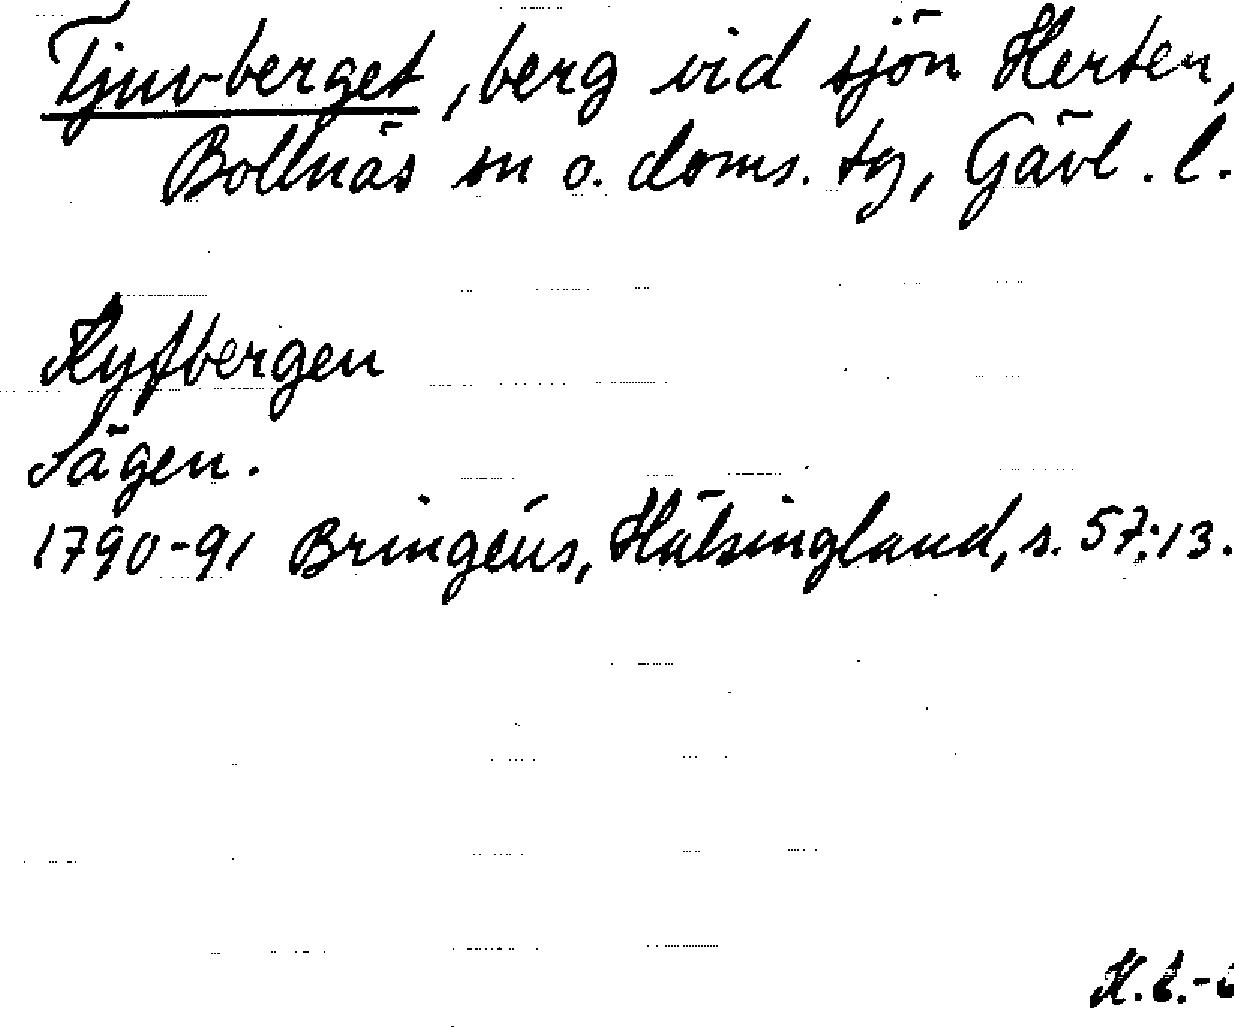 Tjuvberget, berg vid sjön Herten,
Bollnäs sn o. doms. tg, Gävl. l.
Kyfbergen
Sägen.
1790-91 Bringéus, Hälsingland, s. 57:13.